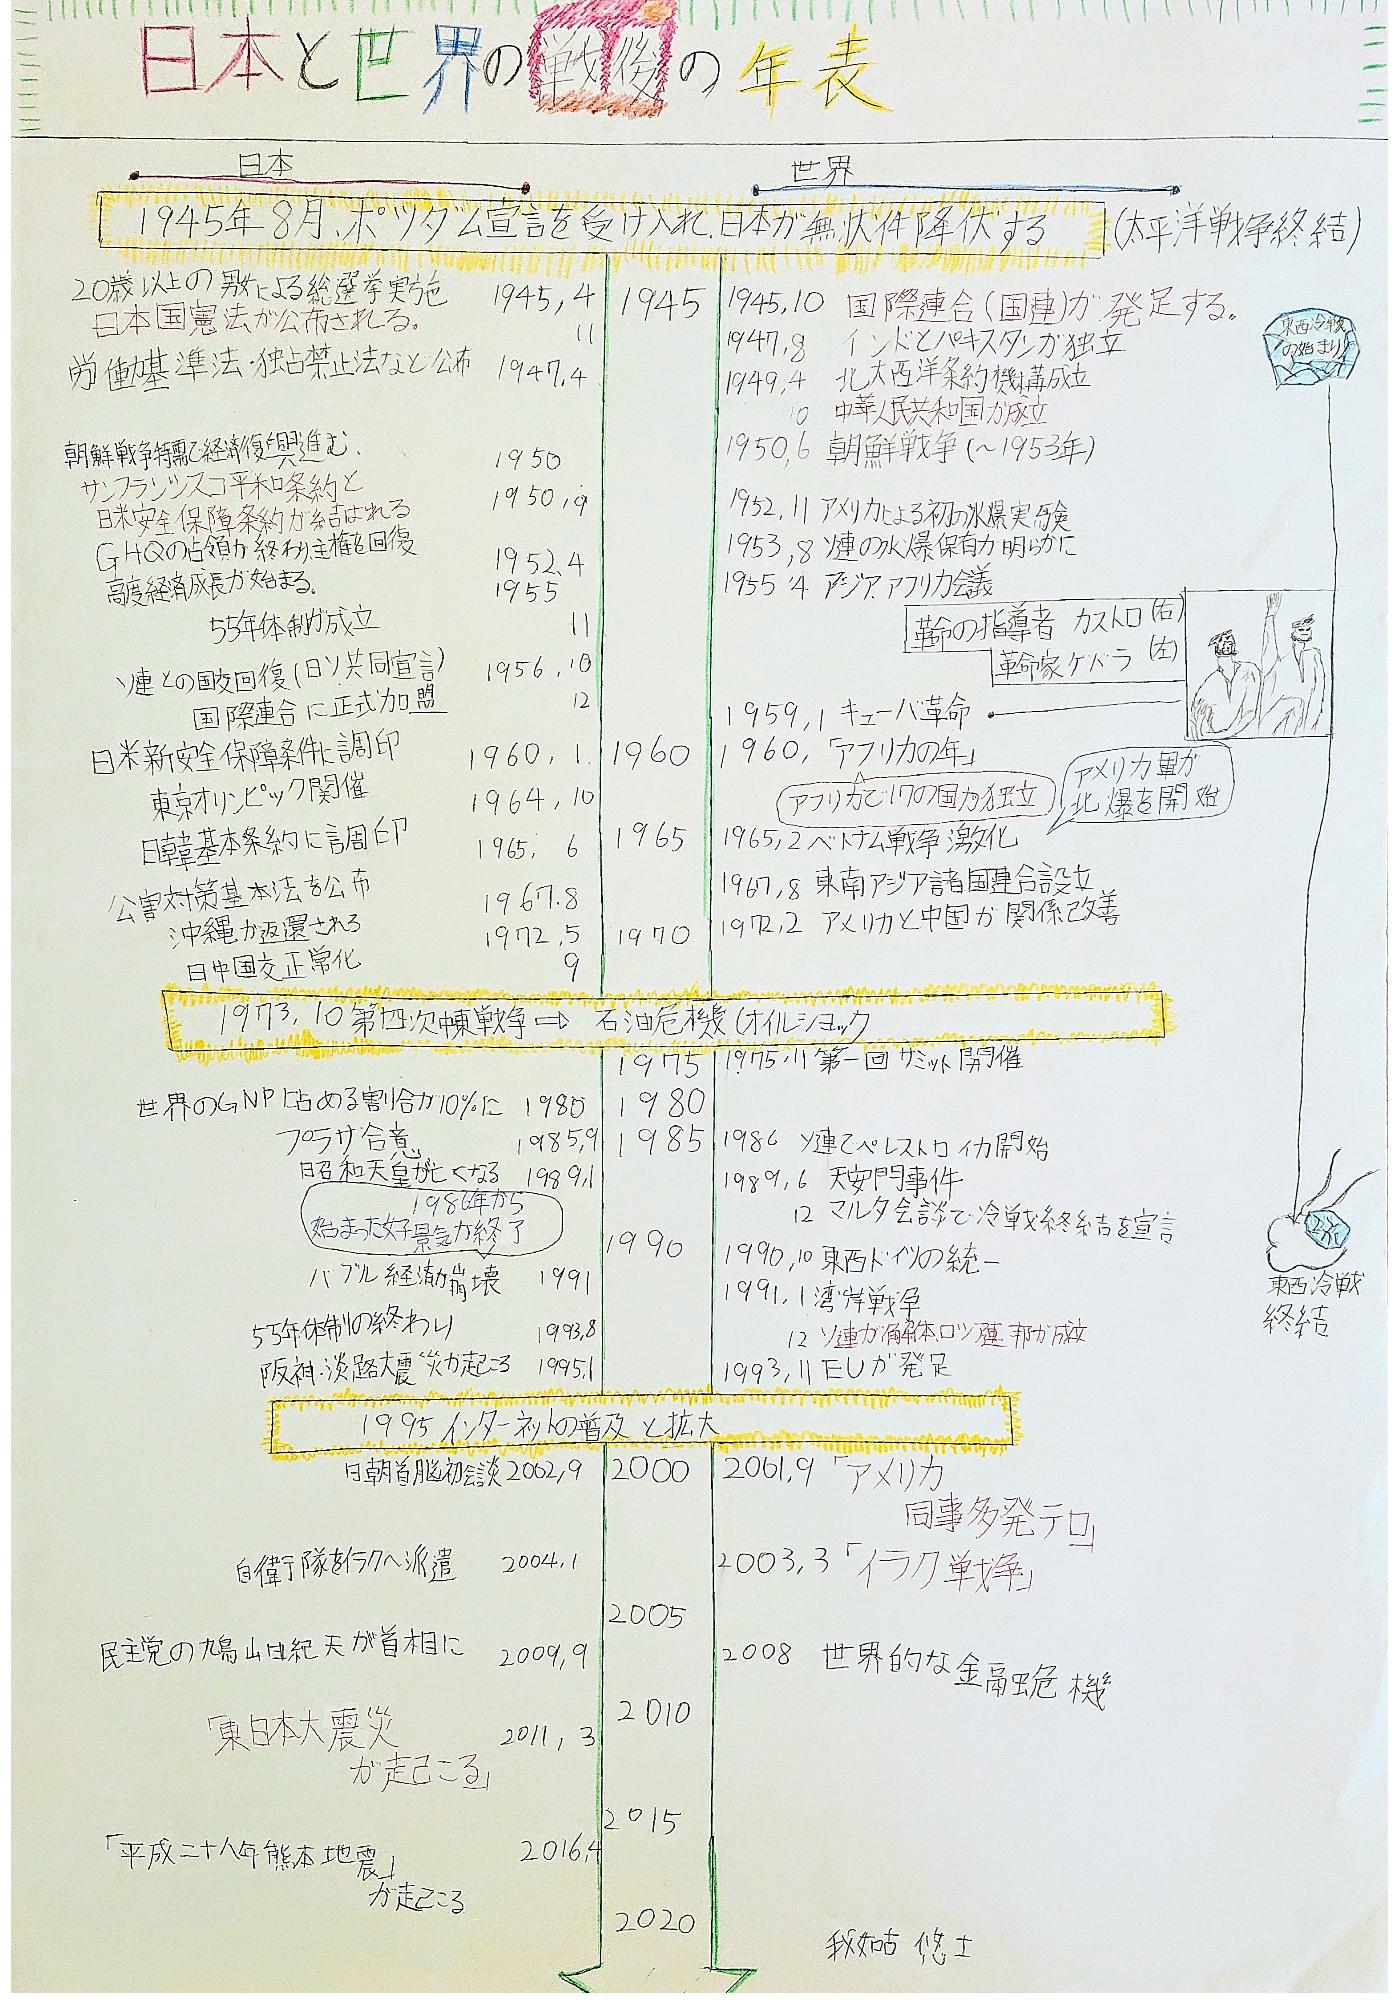 日本と世界の戦後の年表
日本
世界
1945年8月、ポツダム宣言を受け入れ、日本が無状件降伏する (太平洋戦争終結)
20歳以上の男女による総選挙実施 1945,4
日本国憲法が公布される。 11
労働基準法・独占禁止法など公布 1947,4
朝鮮戦争特需で経済復興進む、 1950
サンフランシスコ平和条約と
日米安全保障条約が結ばれる 1950,9
GHQの占領が終わり、主権を回復 1952,4
高度経済成長が始まる。 1955
55年体制が成立 11
ソ連との国交回復(日ソ共同宣言) 1956,10
国際連合に正式加盟 12
日米新安全保障条件に調印 1960,1
東京オリンピック開催 1964,10
日韓基本条約に調印 1965, 6
公害対策基本法を公布 1967.8
沖縄が返還される 1972,5
日中国交正常化 9
1945
1960
1965
1970
1945,10 国際連合(国連)が発足する。
1947,8 インドとパキスタンが独立
1949,4 北大西洋条約機構成立
10 中華人民共和国が成立
1950,6 朝鮮戦争(~1953年)
1952,11 アメリカによる初の水爆実験
1953,8 ソ連の水爆保有が明らかに
1955 4 アジア.アフリカ会議
革命の指導者 カストロ(右)
革命家ゲバラ (左)
1959,1 キューバ革命
1960,「アフリカの年」
アフリカで17の国が独立
アメリカ軍が
北爆を開始
1965,2 ベトナム戦争激化
1967,8 東南アジア諸国連合設立
1972,2 アメリカと中国が関係改善
東西冷戦
の始まり!
1973,10 第四次中東戦争⇨ 石油危機(オイルショック
1975
1980
1985
1990
世界のGNPに占める割合が10%に 1980
プラザ合意 1985,9
昭和天皇が亡くなる 1989,1
1986年から
始まった好景気が終了
バブル経済が崩壊 1991
55年体制の終わり 1993,8
阪神・淡路大震災が起こる 1995,1
1975,11 第一回サミット開催
1986 ソ連でペレストロイカ開始
1989,6 天安門事件
12 マルタ会談で冷戦終結を宣言
1990,10 東西ドイツの統一
1991,1 湾岸戦争
12 ソ連が解体、ロシア連邦が成立
1993,11 EUが発足
東西冷戦
終結
1995 インターネットの普及と拡大
日朝首脳初会談 2002,9
自衛隊をイラクへ派遣 2004,1
民主党の鳩山由紀夫が首相に 2009,9
「東日本大震災
が起こる」 2011,3
「平成二十八年熊本地震」 2016,4
が起こる
2000
2005
2010
2015
2020
2001,9 「アメリカ
同事多発テロ」
2003,3 「イラク戦争」
2008 世界的な金融危機
我如古 悠士